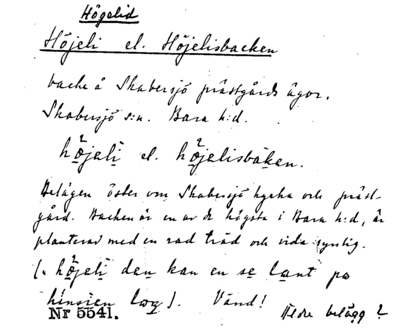 Högelid
Höjeli el. Höjelisbacken
backe å Skabersjö prästgårds ägor.
Skabersjö s:n. Bara h:d.
höjeli el. höjelisbaken.
Belägen öster om Skabersjö kyrka och präst-
gård. Backen är en av de högsta i Bara h:d, är
planterad med en rad träd och vida synlig.
(: höjeli den kan en se lant po
). Vänd!
Nr 5541. Äldre belägg?